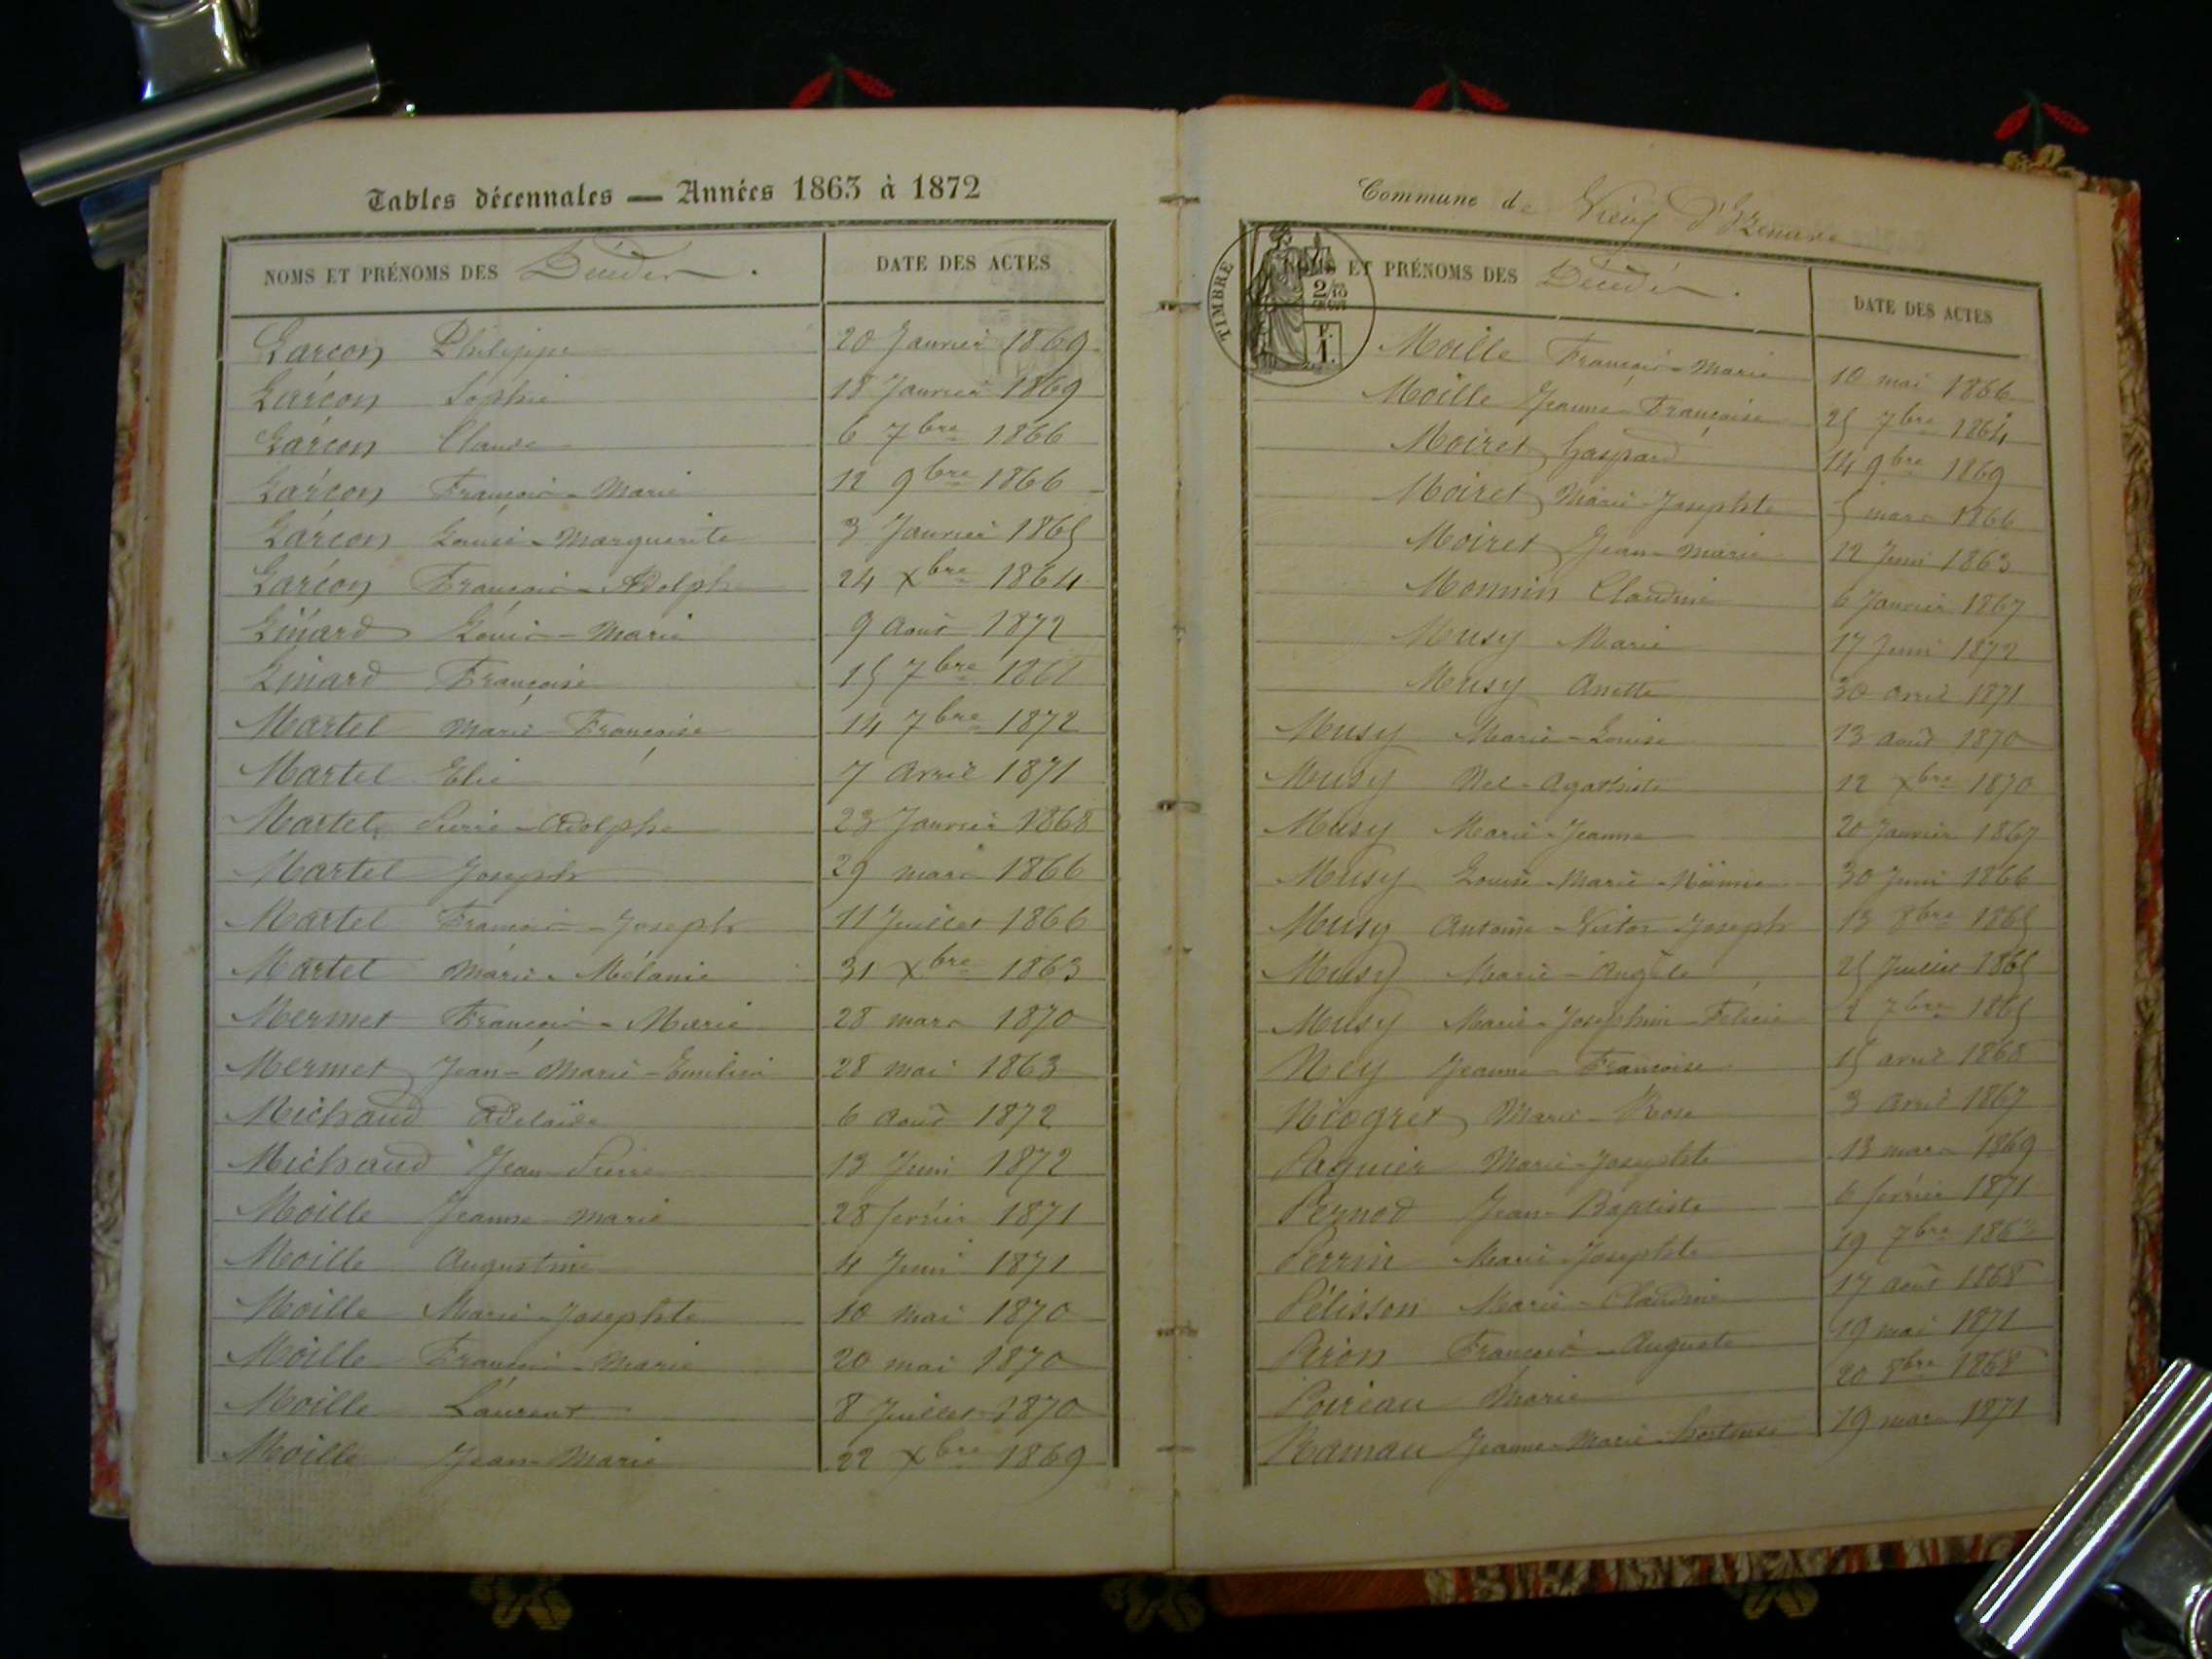 Tables décennales — Années 1863 à 1872
NOMS ET PRÉNOMS DES Décédés. DATE DES ACTES
Larçon Philippe 20 Janvier 1869
Larçon Sophie 18 Janvier 1869
Larçon Claude 6 7bre 1866
Larçon François-Marie 12 9bre 1866
Larçon Louise-Marguerite 3 Janvier 1865
Larçon François-Adolphe 24 Xbre 1864
Louis-Marie 9 Août 1872
Françoise 15 7bre
Martel Marie-Françoise 14 7bre 1872
Martel Elie 7 Avril 1871
Martel Pierre-Adolphe 23 Janvier 1868
Martel Joseph 29 mars 1866
Martel François-Joseph 11 Juillet 1866
Martel Marie-Mélanie 31 Xbre 1863
Mermet François-Marie 28 mars 1870
Mermet Jean-Marie-Emilien 28 mai 1863
Michaud Adelaïde 6 Août 1872
Michaud Jean-Pierre 13 Juin 1872
Moille Jeanne-Marie 28 février 1871
Moille Augustine 4 Juin 1871
Moille Marie-Josephte 10 mai 1870
Moille François-Marie 20 mai 1870
Moille Laurent 8 Juillet 1870
Moille Jean-Marie 22 Xbre 1869
Commune de Vieu d'Izenave
TIMBRE
2/10
F.
1.
NOMS ET PRÉNOMS DES Décédés. DATE DES ACTES
Moille François-Marie 10 mai 1866
Moille Jeanne-Françoise 25 7bre 1864
Moiret Gaspard 14 9bre 1869
Moiret Marie-Josephte 5 mars 1866
Moiret Jean-Marie 12 Juin 1863
Monnin Claudine 6 Janvier 1867
Musy Marie 17 Juin 1872
Musy Anette 30 Avril 1871
Musy Marie-Louise 13 Août 1870
Musy 12 Xbre 1870
Musy Marie-Jeanne 20 Janvier 1867
Musy Louise-Marie 30 Juin 1866
Musy Antoine-Victor-Joseph 13 8bre 1865
Musy Marie-Angèle 25 Juillet 1865
Musy Marie-Josephine-Félicie 2 7bre 1865
Ney Jeanne-Françoise 15 avril 1868
Niogret Marie-Rose 3 Avril 1867
Paquier Marie-Josephte 13 mars 1869
Pernod Jean-Baptiste 6 février 1871
Perrin Marie-Josephte 19 7bre 1863
Pélisson Marie-Claudine 17 août 1868
Piron François-Auguste 19 mai 1871
Poireau Marie 20 8bre 1868
Ramau Jeanne-Marie-hortense 19 mars 1871